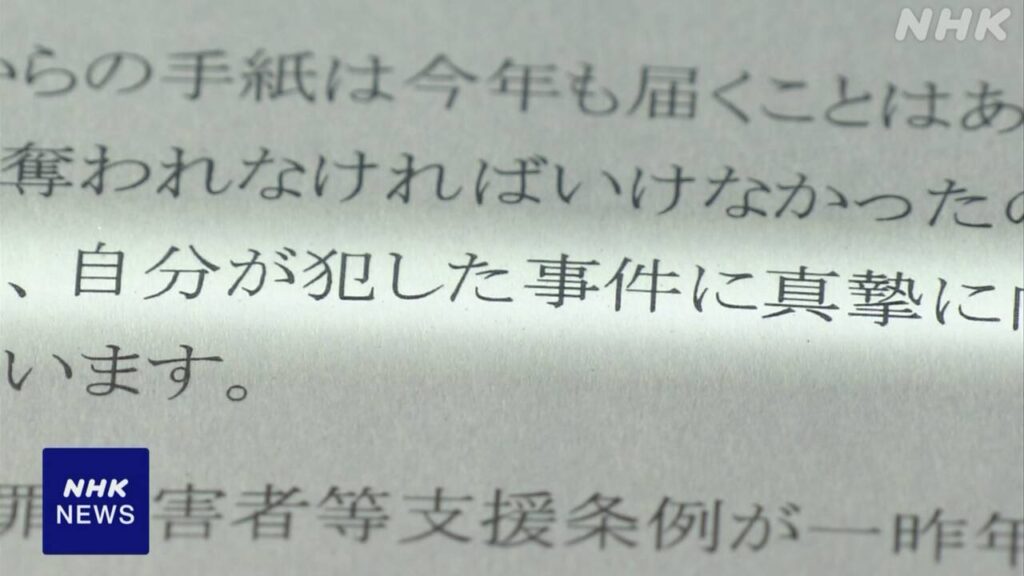 NHK
からの手紙は今年も届くことはあ
奪われなければいけなかったの
、自分が犯した事件に真摯に
います。
罪 害者等支援条例が一昨年
NHK
NEWS